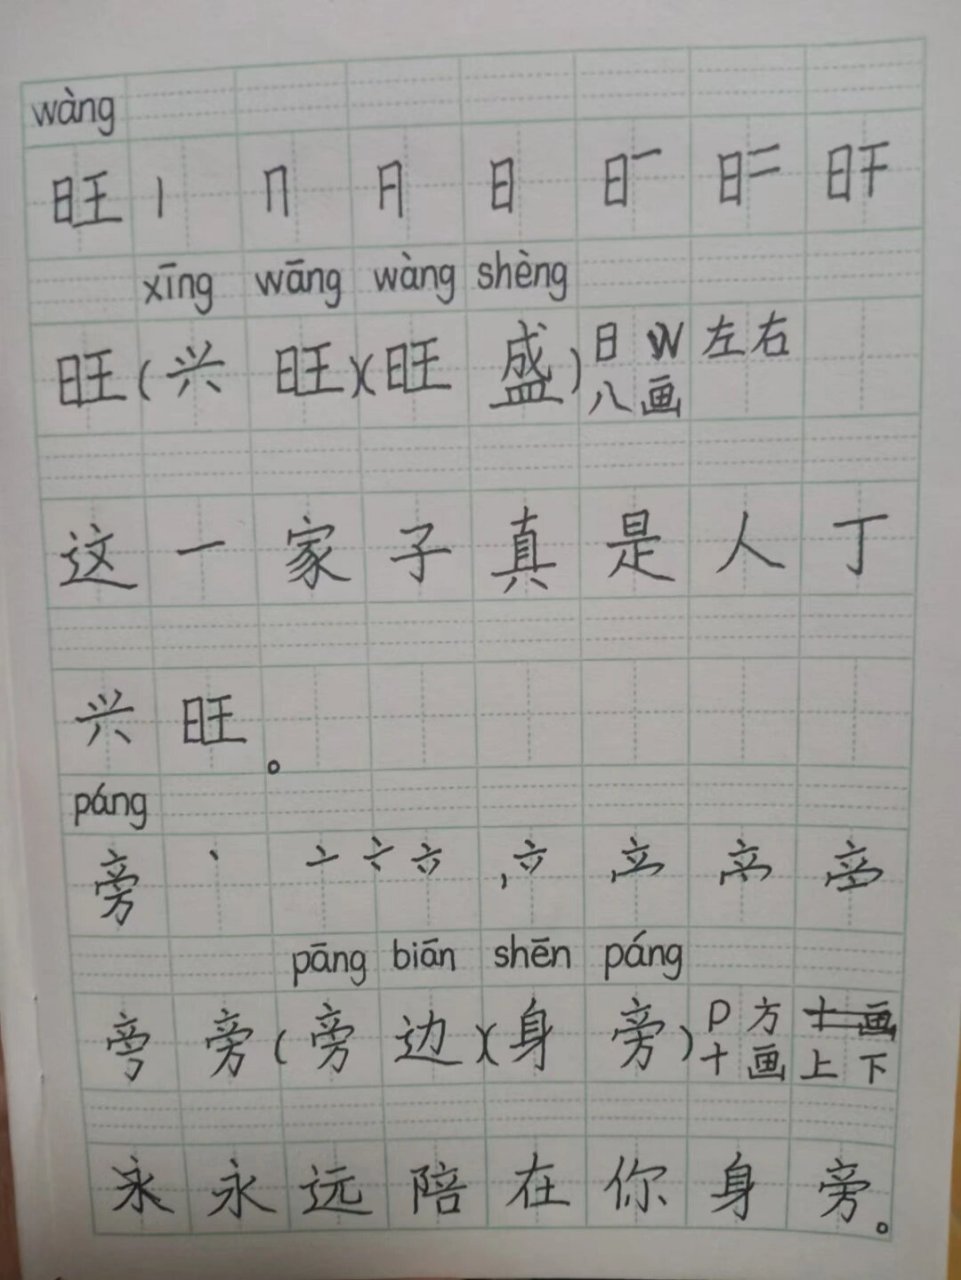 wàng
旺 丨 冂 月 日 日一 日二 旰
xīng wāng wàng shèng
旺(兴旺)(旺盛)日 W 左右
八画
这一家子真是人丁
兴旺。
páng
旁 丶 亠
pāng biān shēn páng
旁(旁边)(身旁)P 方 十画
十画 上下
永永远陪在你身旁。